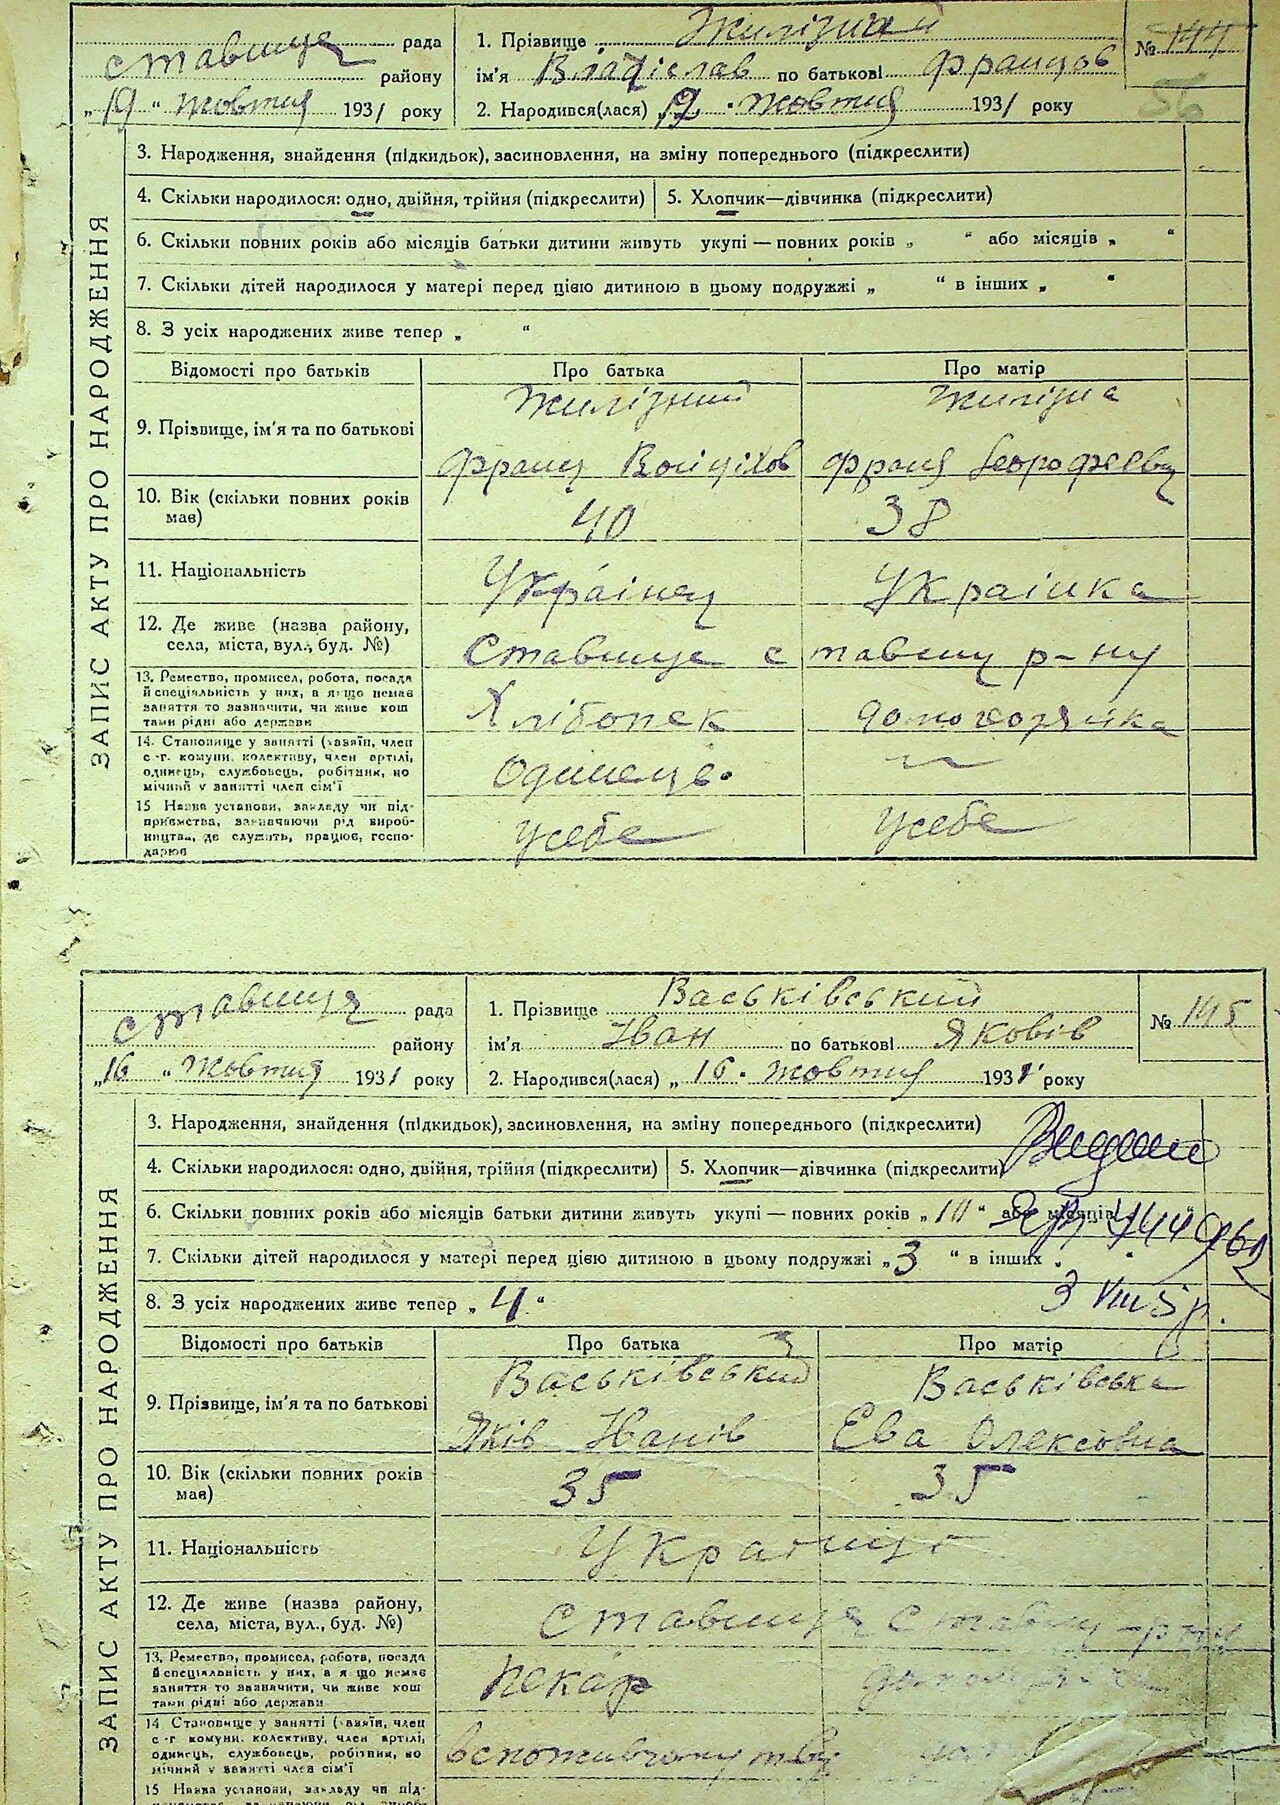 ЗАПИС АКТУ ПРО НАРОДЖЕННЯ
Ставище рада
району
„19“ жовтня 1931 року
1. Прізвище Жилізний
ім'я Владіслав по батькові Францов
2. Народився(лася) „19“ жовтня 1931 року
№ 144
56
3. Народження, знайдення (підкидьок), засиновлення, на зміну попереднього (підкреслити)
4. Скільки народилося: одно, двійня, трійня (підкреслити)
5. Хлопчик—дівчинка (підкреслити)
6. Скільки повних років або місяців батьки дитини живуть укупі — повних років „ “ або місяців „ “
7. Скільки дітей народилося у матері перед цією дитиною в цьому подружжі „ “ в інших „ “
8. З усіх народжених живе тепер „ “
Відомості про батьків Про батька Про матір
9. Прізвище, ім'я та по батькові
Жилізний Жилізна
Франц Войціхов Франя
10. Вік (скільки повних років має) 40 38
11. Національність Українец Українка
12. Де живе (назва району, села, міста, вул., буд. №)
Ставище ставищ р-ну
13. Ремество, промисел, робота, посада
й спеціяльність у них, а якщо немає
заняття то зазначити, чи живе кош
тами рідні або держави
Хлібопек домохозяйка
14. Становище у занятті (хазяїн, член
с.-г. комуни, колективу, член артілі,
одинець, службовець, робітник, по
мічний у занятті член сім'ї
Одинець
15 Назва установи, закладу чи під-
приємства, зазначаючи рід вироб-
ництва, де служить, працює, госпо-
дарює
усебе усебе
ЗАПИС АКТУ ПРО НАРОДЖЕННЯ
Ставище рада
району
„16“ жовтня 1931 року
1. Прізвище Васьківський
ім'я Іван по батькові Яковів
2. Народився(лася) „16“ жовтня 1931 року
№ 145
3. Народження, знайдення (підкидьок), засиновлення, на зміну попереднього (підкреслити)
4. Скільки народилося: одно, двійня, трійня (підкреслити)
5. Хлопчик—дівчинка (підкреслити)
6. Скільки повних років або місяців батьки дитини живуть укупі — повних років „10“ або місяців
7. Скільки дітей народилося у матері перед цією дитиною в цьому подружжі „3“ в інших „
8. З усіх народжених живе тепер „4“
Відомості про батьків Про батька Про матір
9. Прізвище, ім'я та по батькові
Васьківський Васьківська
Яків Іванів Ева Олексовна
10. Вік (скільки повних років має) 35 35
11. Національність Українці
12. Де живе (назва району, села, міста, вул., буд. №)
Ставище Ставищ р-ну
13. Ремество, промисел, робота, посада
й спеціяльність у них, а якщо немає
заняття то зазначити, чи живе кош
тами рідні або держави
пекар
14 Становище у занятті (хазяїн, член
с.-г. комуни, колективу, член артілі,
одинець, службовець, робітник, по
мічний у занятті член сім'ї
15 Назва установи, закладу чи під-